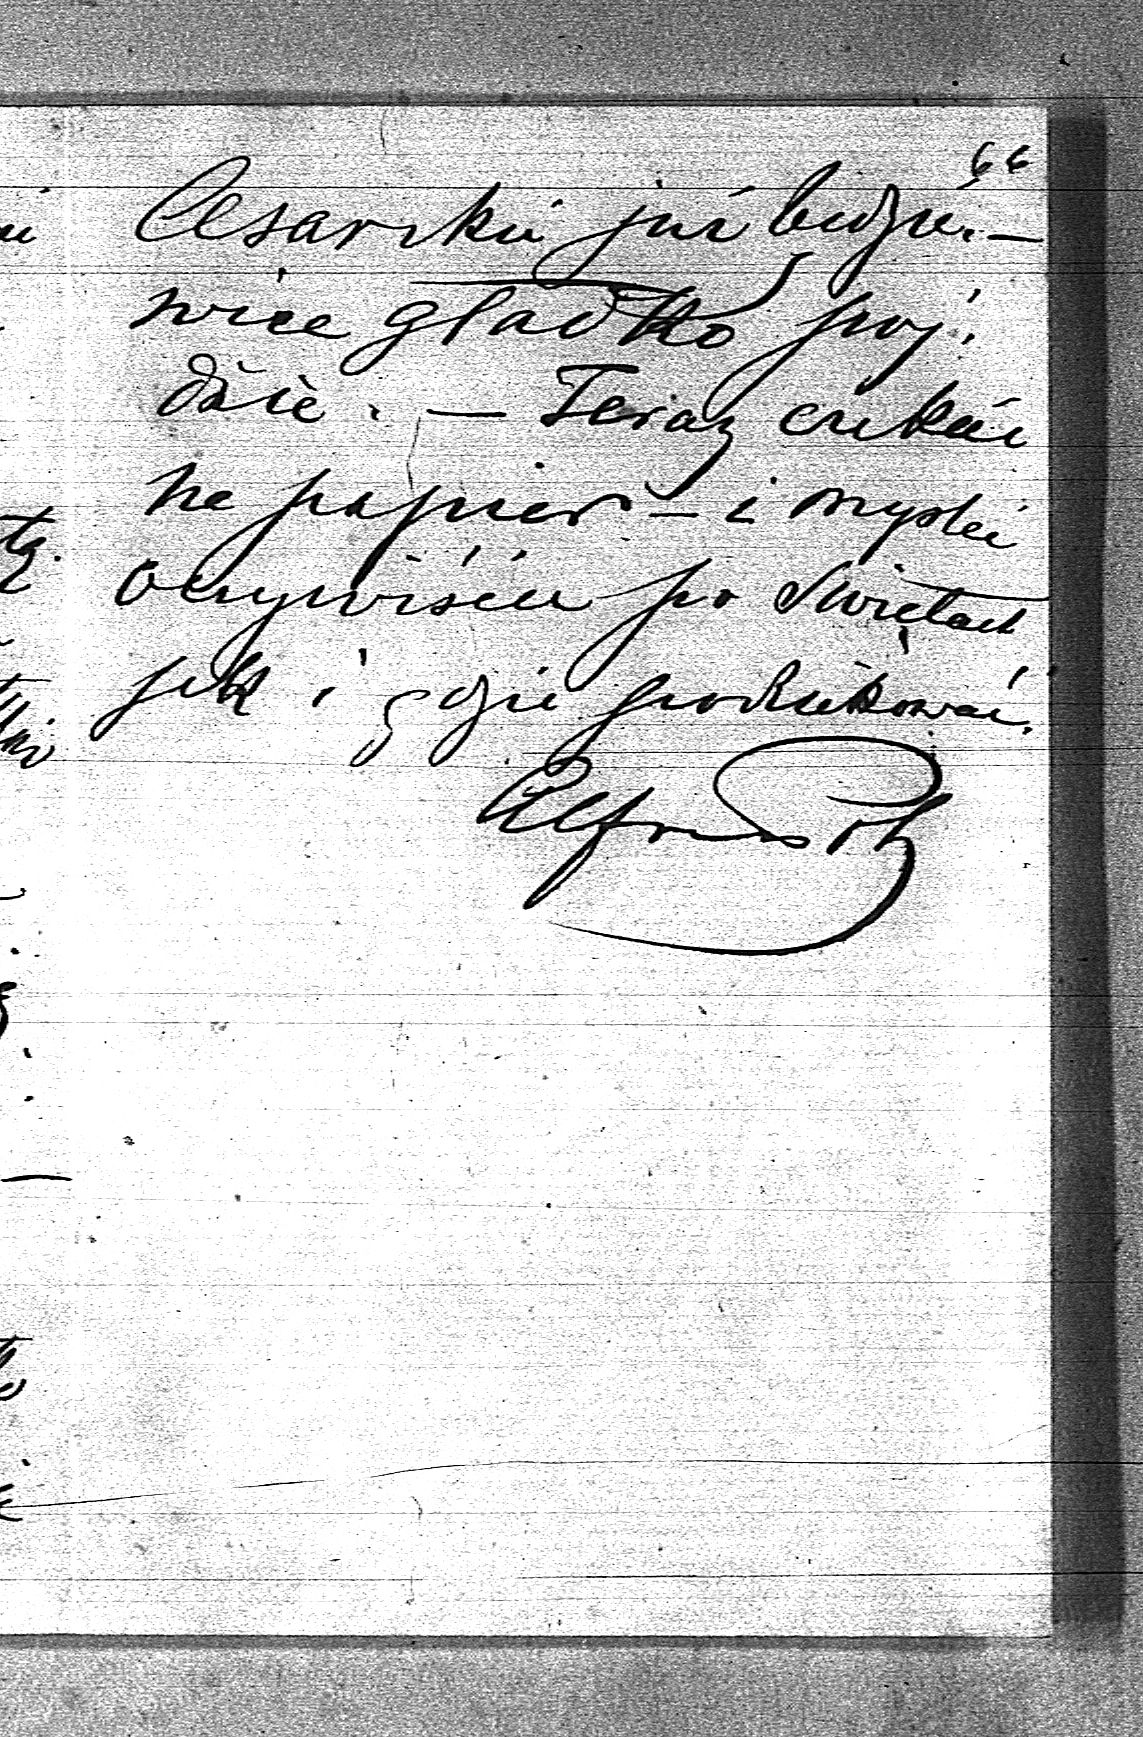 66
Cesarskie już będzie. —
więc gładko pój-
dzie. — Teraz czekać
na papier — i myśleć
oczywiście po Świętach
jak i gdzie produkować.
Alfred